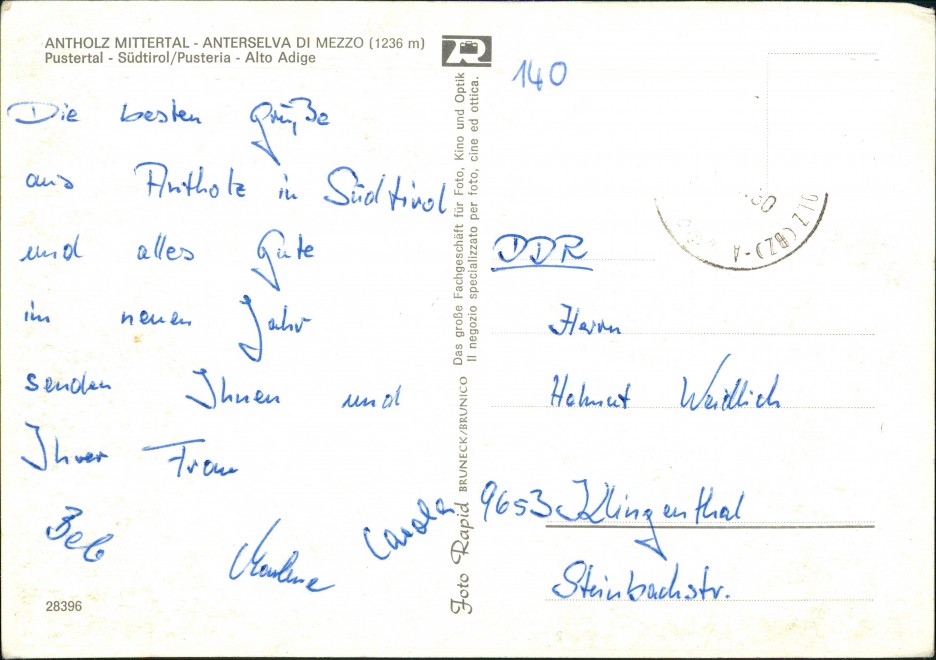 ANTHOLZ MITTERTAL - ANTERSELVA DI MEZZO (1236 m)
Pustertal - Südtirol/Pusteria - Alto Adige
Die besten Grüße
aus Antholz in Südtirol
und alles Gute
im neuen Jahr
senden Ihnen und
Ihrer Frau
Marlene
Carola
28396
Foto Rapid BRUNECK/BRUNICO Das große Fachgeschäft für Foto, Kino und Optik
Il negozio specializzato per foto, cine ed ottica.
140
DDR
Herrn
Helmut Weidlich
9653 Klingenthal
Steinbachstr.
OLZ (BZ) - A